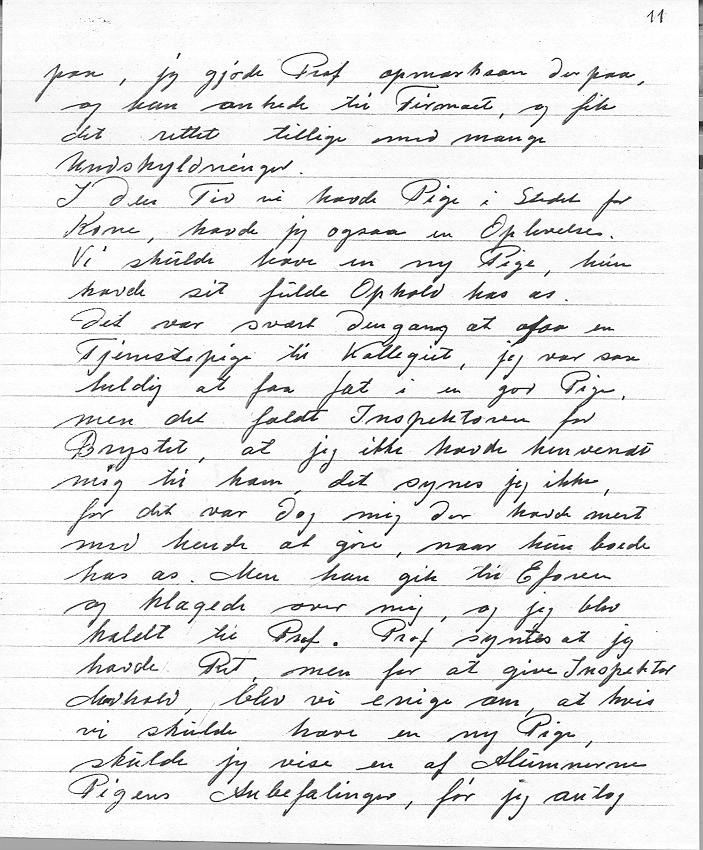 11
paa, jeg gjorde Prof opmærksom derpaa,
og han ankede til Firmaet, og fik
det rettet tillige med mange
Undskyldninger.
I den Tid vi havde Pige i Stedet for
Kone, havde jeg ogsaa en Oplevelse.
Vi skulde have en ny Pige, hun
havde sit fulde Ophold hos os.
Det var svært dengang at faa en
Tjenestepige til Kollegiet, jeg var saa
heldig at faa fat i en god Pige,
men det faldt Inspektoren for
Brystet, at jeg ikke havde henvendt
mig til ham, det synes jeg ikke,
for det var dog mig der havde mest
med hende at göre, naar hun boede
hos os. Men han gik til Eforen
og klagede over mig, og jeg blev
kaldt til Prof. Prof syntes at jeg
havde Ret, men for at give Inspektor
Medhold, blev vi enige om, at hvis
vi skulde have en ny Pige,
skulde jeg vise en af Alumnerne
Pigens Anbefalinger, før jeg antog